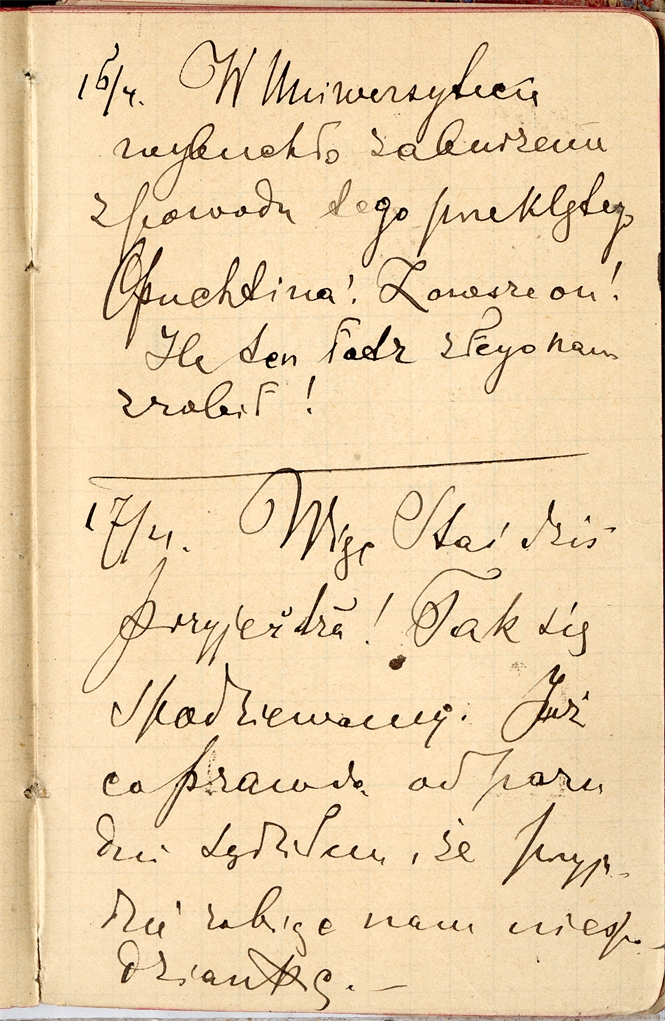 16/4. W Uniwersytecie
wybuchło zaburzenie
z powodu tego przeklętego
Apuchtina! Zawsze on!
Ile ten łotr złego nam
zrobił!
17/4. Więc Staś dziś
przyjeżdża! Tak się
spodziewamy. Już
co prawda od paru
dni sądziłem, że przyje-
dzie robiąc nam niespo-
dziankę. —